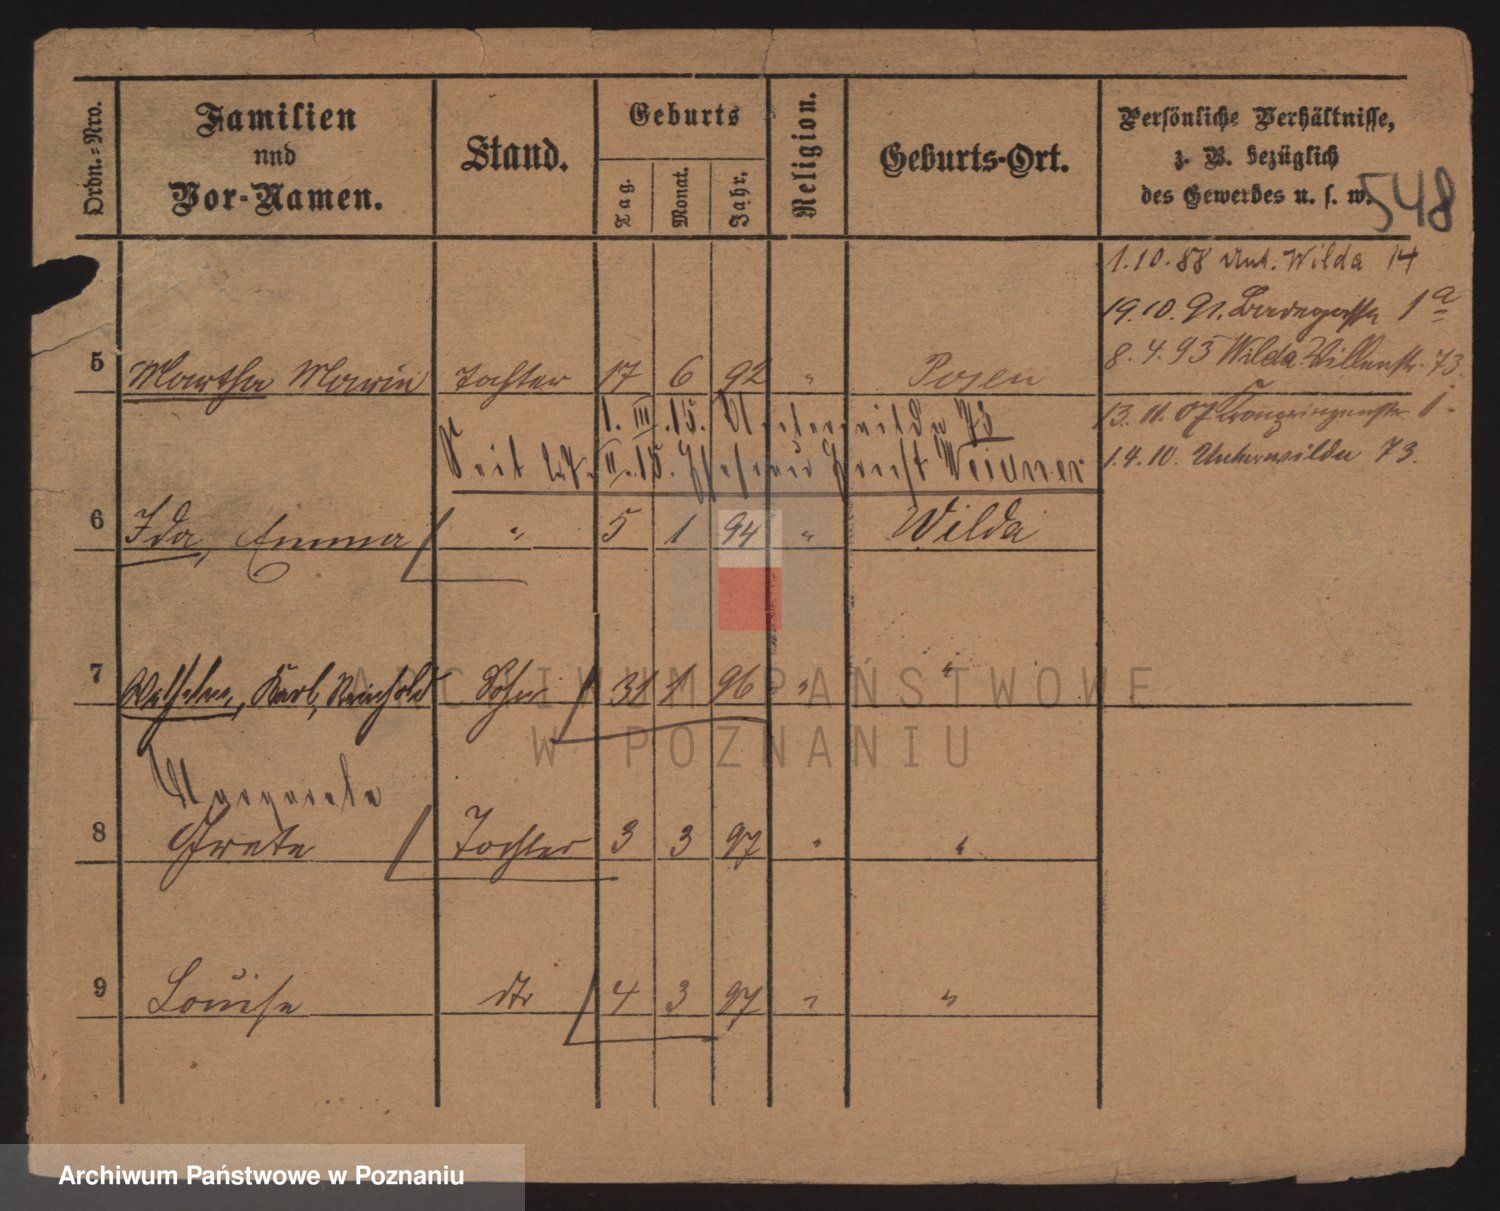 Ordn.-Nro.
Familien
und
Vor-Namen.
Stand.
Geburts
Tag.
Monat.
Jahr.
Religion.
Geburts-Ort.
Persönliche Verhältnisse,
z. B. bezüglich
des Gewerbes u. s. w.
548
1.10.88 Unt. Wilda 14
19.10.91. Badegasse 1a
8.4.93 Wilda Villenstr. 73.
5 Martha Marie Tochter 17 6 92 " Posen
13.11.07 Kronprinzenstr. 1.
1. III. 15. Unterwilda 73
1.4.10. Unterwilda 73.
Seit II. 15. Ehefrau Weidner
6 Ida, Emma " 5 1 94 " Wilda
7 Wilhelm, Karl, Reinhold Sohn 31 1 96 " "
Margarete
8 Grete Tochter 3 3 97 " "
9 Louise dto 4 3 97 " "
ARCHIWUM PAŃSTWOWE
W POZNANIU
Archiwum Państwowe w Poznaniu